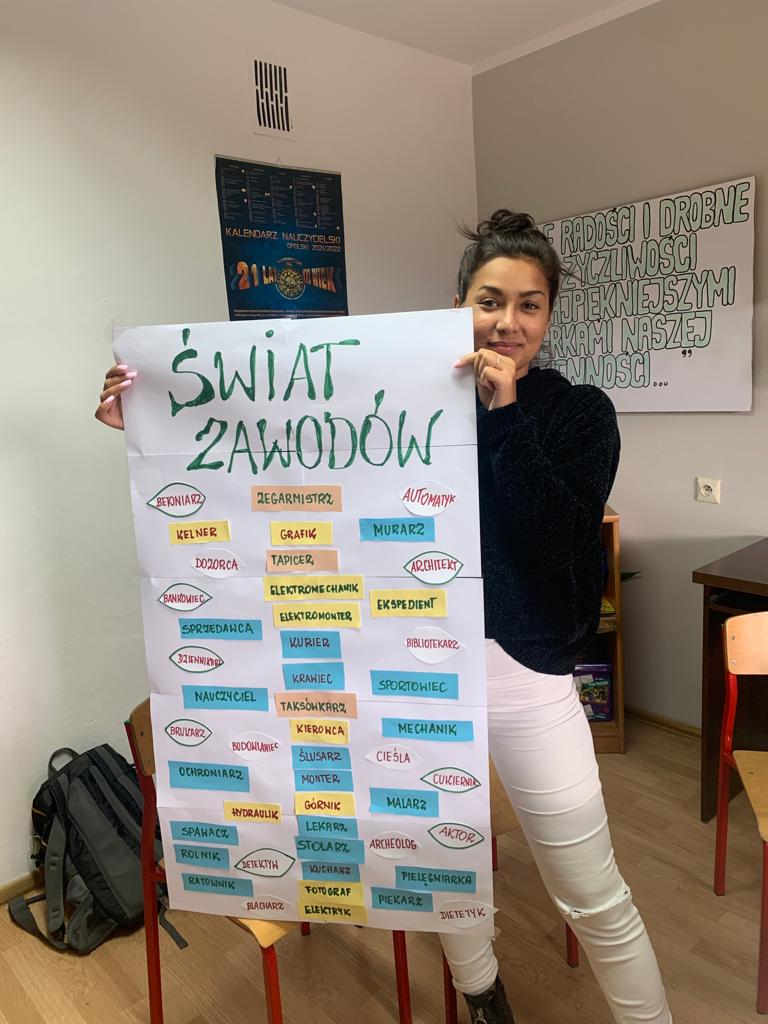 KALENDARZ NAUCZYCIELSKI
OPOLSKI 2021/2022
21
RADOŚCI I DROBNE
NASZEJ
ŚWIAT
ZAWODÓW
BETONIARZ ZEGARMISTRZ AUTOMATYK
KELNER GRAFIK MURARZ
DOZORCA TAPICER ARCHITEKT
ELEKTROMECHANIK
BANKOWIEC ELEKTROMONTER EKSPEDIENT
SPRZEDAWCA KURIER BIBLIOTEKARZ
DZIENNIKARZ KRAWIEC SPORTOWIEC
NAUCZYCIEL TAKSÓWKARZ
BRUKARZ KIEROWCA MECHANIK
BUDOWLANIEC ŚLUSARZ CIEŚLA
OCHRONIARZ MONTER CUKIERNIK
HYDRAULIK GÓRNIK MALARZ
SPAWACZ LEKARZ AKTOR
ROLNIK STOLARZ ARCHEOLOG
DETEKTYW KUCHARZ PIELĘGNIARKA
RATOWNIK FOTOGRAF PIEKARZ
BLACHARZ ELEKTRYK DIETETYK